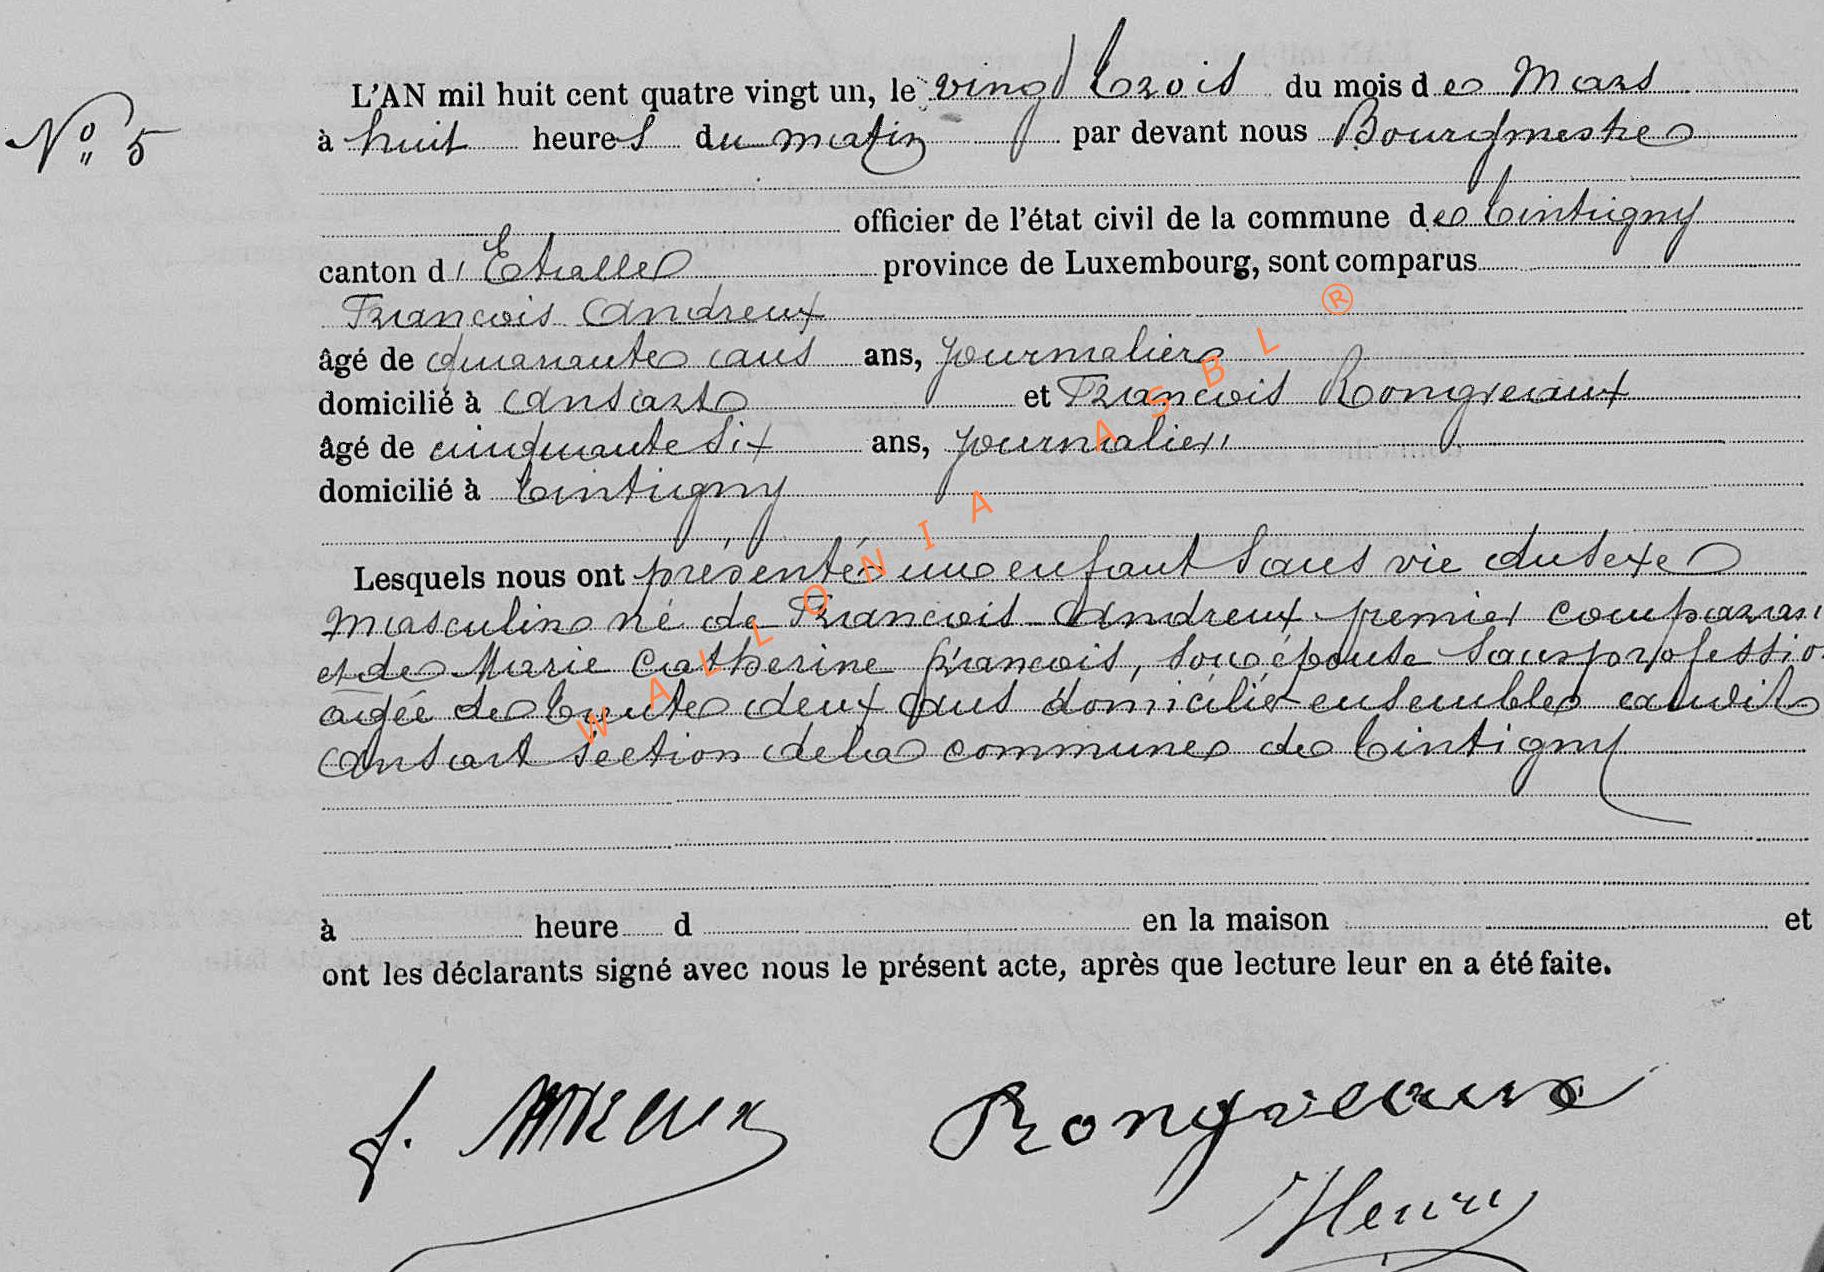 L'AN mil huit cent quatre vingt un, le vingt trois du mois de Mars
N° 5
à huit heures du matin par devant nous Bourgmestre
officier de l'état civil de la commune de Tintigny
canton d'Etalle province de Luxembourg, sont comparus
François Andreux
âgé de quarante ans ans, journalier
domicilié à Ansart et François Rongveaux
âgé de cinquante six ans, journalier
domicilié à Tintigny
Lesquels nous ont présenté un enfant sans vie du sexe
masculin né de François Andreux premier comparan
et de Marie Catherine François, son épouse sans professio
agée de trente deux ans domicilié ensemble audit
Ansart section de la commune de Tintigny
à heure d en la maison et
ont les déclarants signé avec nous le présent acte, après que lecture leur en a été faite.
f. Andreux Rongveaux
Henry
WALLONIA ASBL ®